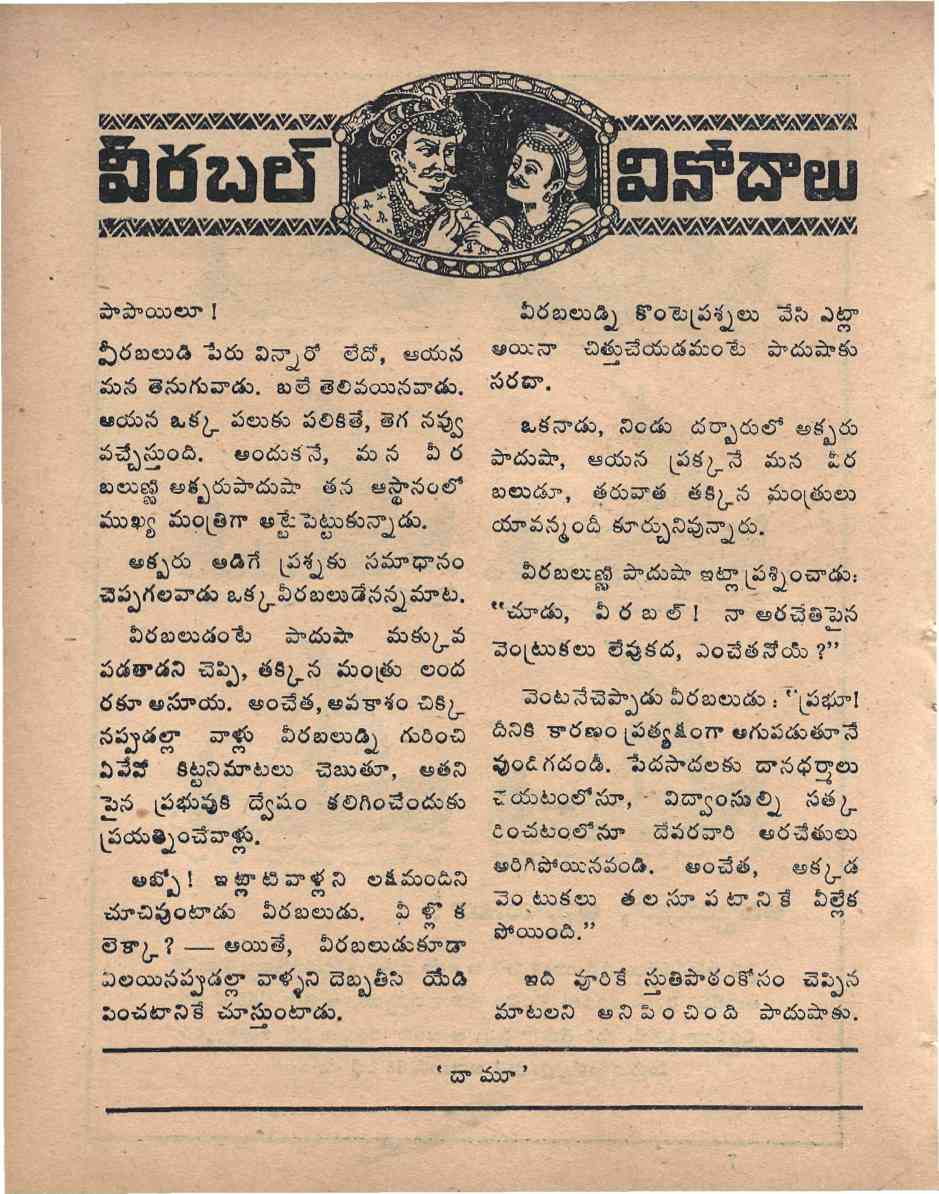 వీరబల్ వినోదాలు
పాపాయిలూ !
వీరబలుడి పేరు విన్నారో లేదో, ఆయన
మన తెనుగువాడు. బలే తెలివయినవాడు.
ఆయన ఒక్క పలుకు పలికితే, తెగ నవ్వు
వచ్చేస్తుంది. అందుకనే, మన వీర
బలుణ్ణి అక్బరుపాదుషా తన ఆస్థానంలో
ముఖ్య మంత్రిగా అట్టేపెట్టుకున్నాడు.
అక్బరు అడిగే ప్రశ్నకు సమాధానం
చెప్పగలవాడు ఒక్కవీరబలుడేనన్నమాట.
వీరబలుడంటే పాదుషా మక్కువ
పడతాడని చెప్పి, తక్కిన మంత్రు లంద
రకూ అసూయ. అంచేత, అవకాశం చిక్కి
నప్పుడల్లా వాళ్లు వీరబలుడ్ని గురించి
ఏవేవో కిట్టనిమాటలు చెబుతూ, అతని
పైన ప్రభువుకి ద్వేషం కలిగించేందుకు
ప్రయత్నించేవాళ్లు.
అబ్బో! ఇట్లాటివాళ్లని లక్షమందిని
చూచివుంటాడు వీరబలుడు. వీళ్లొక
లెక్కా ? — అయితే, వీరబలుడుకూడా
ఏలయినప్పుడల్లా వాళ్ళని దెబ్బతీసి యేడి
పించటానికే చూస్తుంటాడు.
వీరబలుడ్ని కొంటెప్రశ్నలు వేసి ఎట్లా
అయినా చిత్తుచేయడమంటే పాదుషాకు
సరదా.
ఒకనాడు, నిండు దర్బారులో అక్బరు
పాదుషా, ఆయన ప్రక్కనే మన వీర
బలుడూ, తరువాత తక్కిన మంత్రులు
యావన్మందీ కూర్చునివున్నారు.
వీరబలుణ్ణి పాదుషా ఇట్లా ప్రశ్నించాడు:
“చూడు, వీరబల్! నా అరచేతిపైన
వెంట్రుకలు లేవుకద, ఎంచేతనోయ్ ?”
వెంటనేచెప్పాడు వీరబలుడు : “ప్రభూ!
దీనికి కారణం ప్రత్యక్షంగా అగుపడుతూనే
వుండిగదండీ. పేదసాదలకు దానధర్మాలు
చేయటంలోనూ, విద్వాంసుల్ని సత్క
రించటంలోనూ దేవరవారి అరచేతులు
అరిగిపోయినవండి. అంచేత, అక్కడ
వెంటుకలు తలసూపటానికే వీల్లేక
పోయింది.”
ఇది వూరికే స్తుతిపాఠంకోసం చెప్పిన
మాటలని అనిపించింది పాదుషాకు.
‘దామూ’